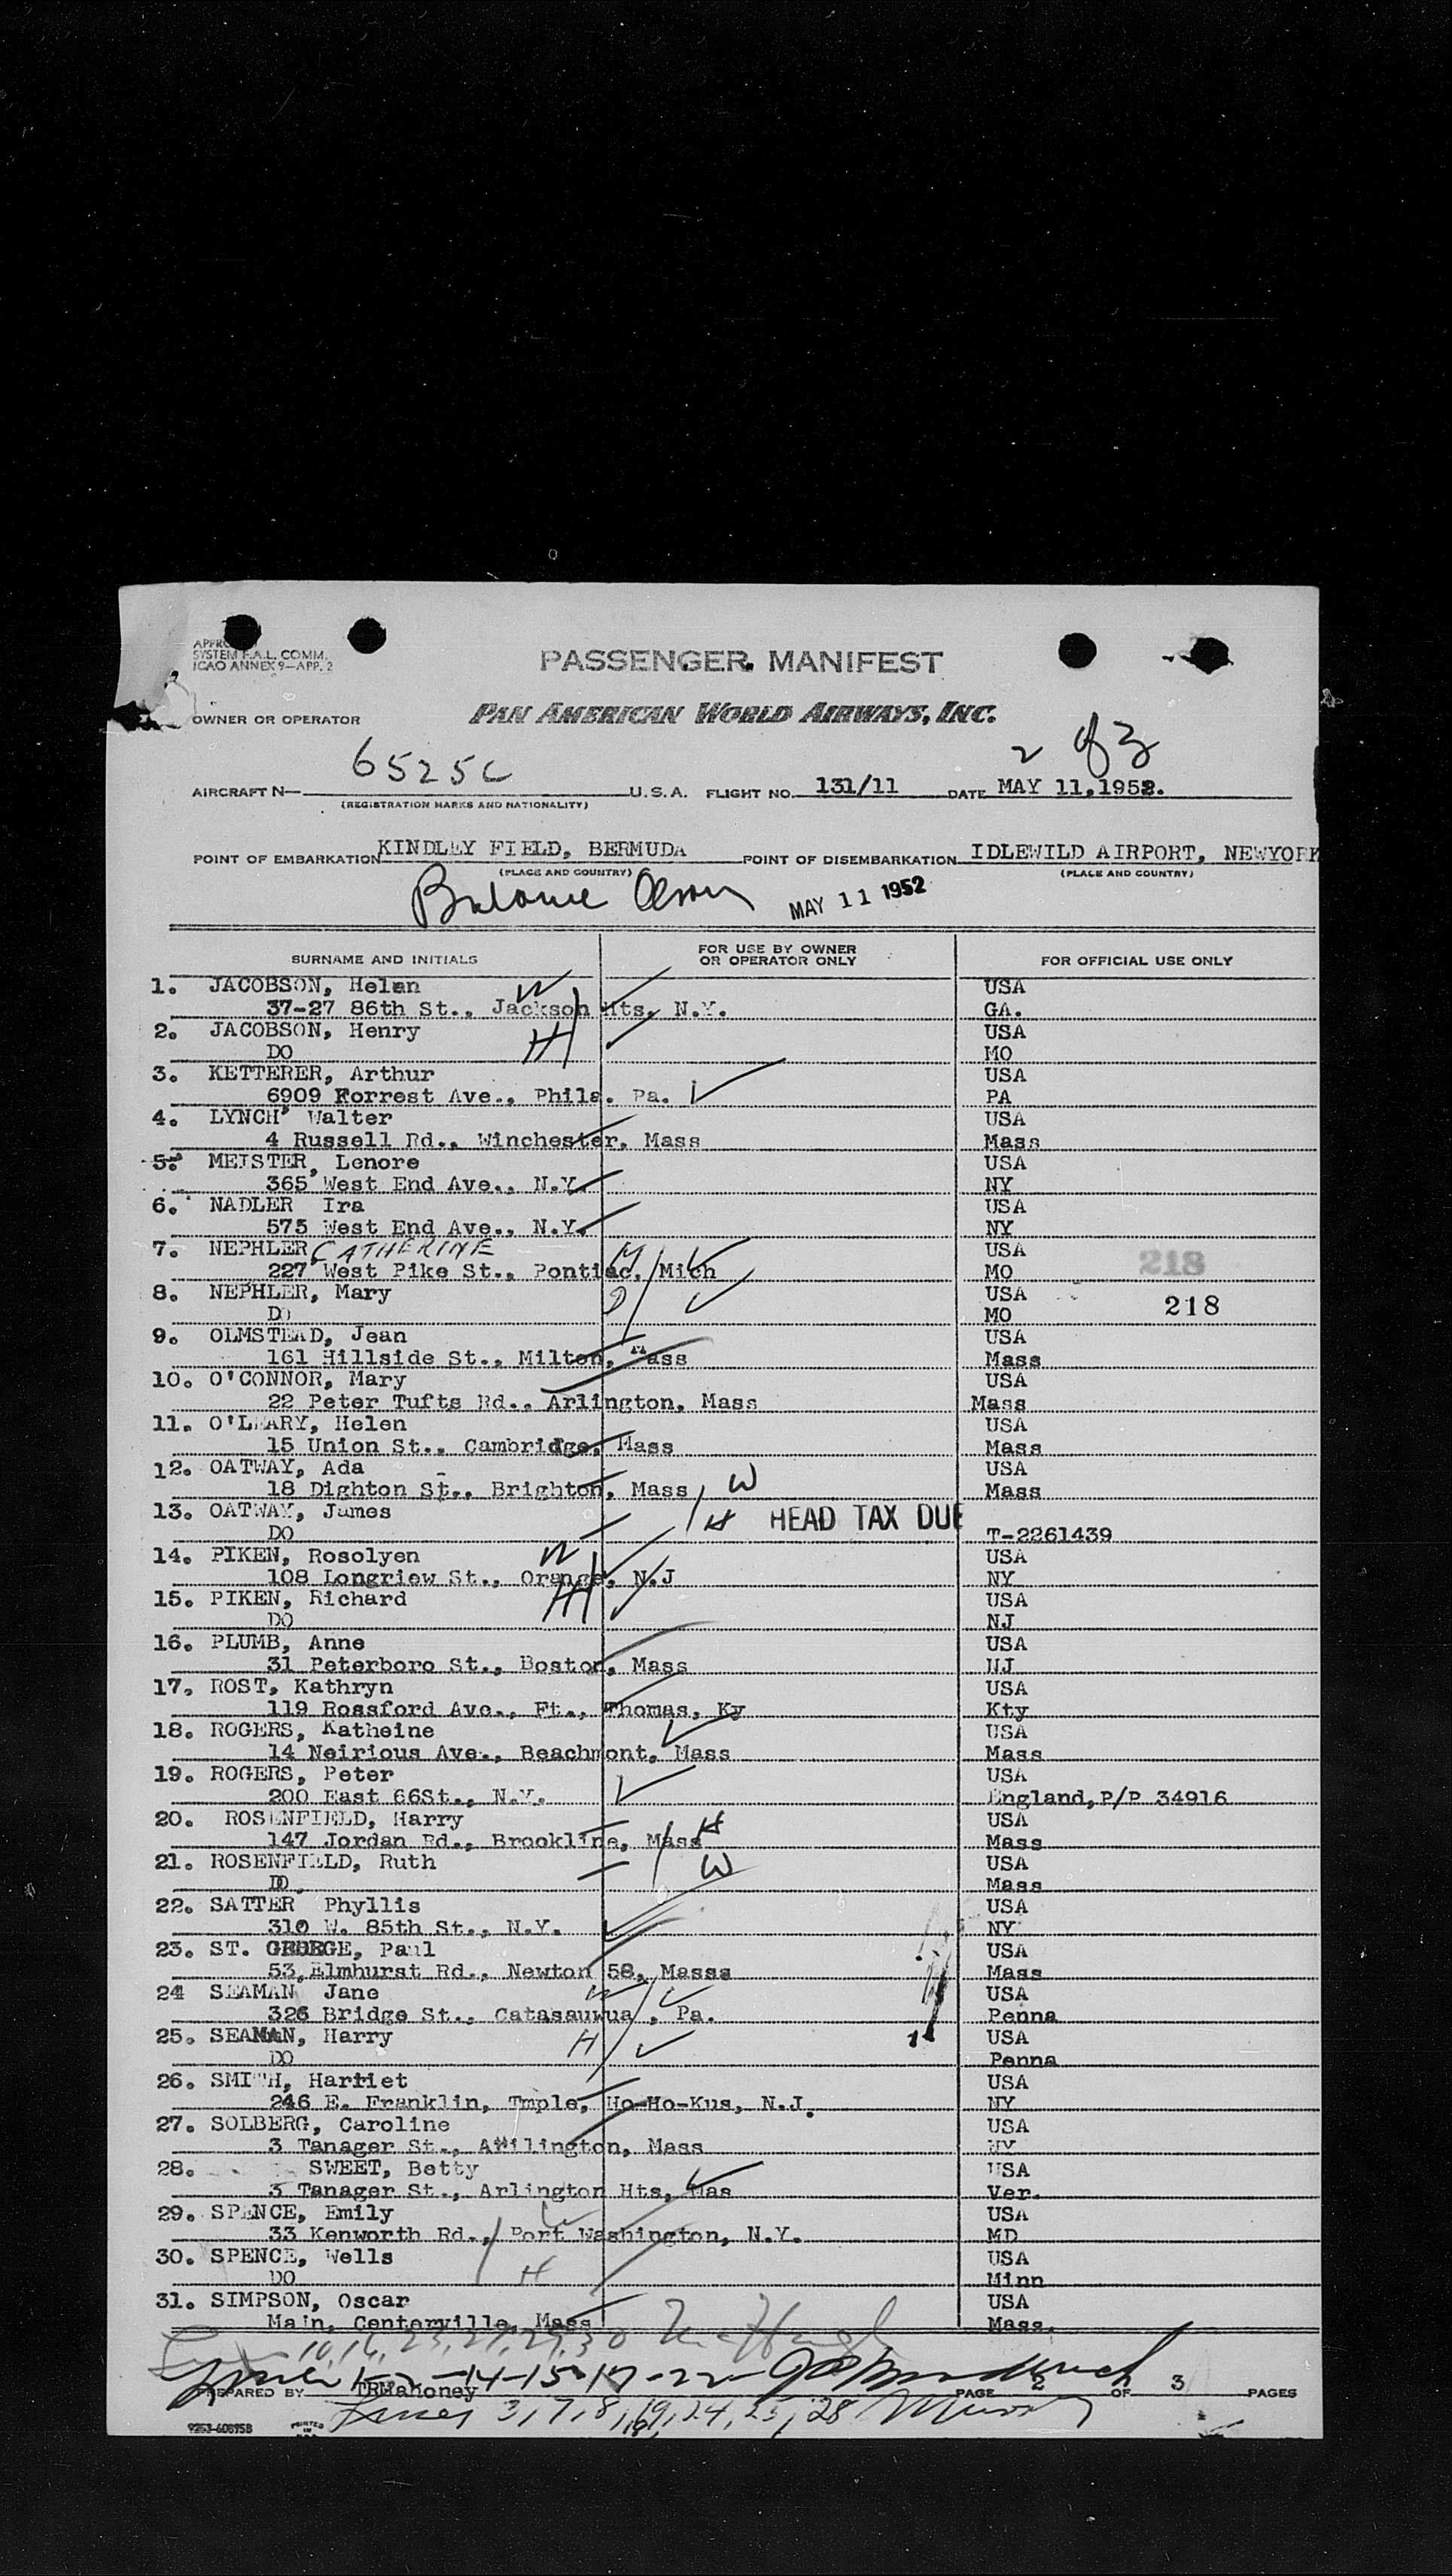 SYSTEM F.A.L. COMM.
ICAO ANNEX 9—APP. 2
PASSENGER MANIFEST
OWNER OR OPERATOR
PAN AMERICAN WORLD AIRWAYS, INC.
2 of 3
6525C
AIRCRAFT N— U.S.A. FLIGHT NO. 131/11 DATE MAY 11,1952.
(REGISTRATION MARKS AND NATIONALITY)
POINT OF EMBARKATION KINDLEY FIELD, BERMUDA POINT OF DISEMBARKATION IDLEWILD AIRPORT, NEWYORK
(PLACE AND COUNTRY) (PLACE AND COUNTRY)
Balance Olson MAY 11 1952
SURNAME AND INITIALS FOR USE BY OWNER OR OPERATOR ONLY FOR OFFICIAL USE ONLY
1. JACOBSON, Helen W USA
37-27 86th St., Jackson Hts, N.Y. GA.
2. JACOBSON, Henry H USA
DO MO
3. KETTERER, Arthur USA
6909 Forrest Ave., Phila. Pa. PA
4. LYNCH, Walter USA
4 Russell Rd., Winchester, Mass Mass
5. MEISTER, Lenore USA
365 West End Ave., N.Y. NY
6. NADLER Ira USA
575 West End Ave., N.Y. NY
7. NEPHLER CATHERINE M USA 218
227 West Pike St., Pontiac, Mich MO
8. NEPHLER, Mary D USA 218
DO MO
9. OLMSTEAD, Jean USA
161 Hillside St., Milton, Mass Mass
10. O'CONNOR, Mary USA
22 Peter Tufts Rd., Arlington, Mass Mass
11. O'LEARY, Helen USA
15 Union St., Cambridge, Mass Mass
12. OATWAY, Ada USA
18 Dighton St., Brighton, Mass W Mass
13. OATWAY, James H HEAD TAX DUE
DO T-2261439
14. PIKEN, Rosolyen W USA
108 Longriew St., Orange, N.J NY
15. PIKEN, Richard H USA
DO NJ
16. PLUMB, Anne USA
31 Peterboro St., Boston, Mass NJ
17. ROST, Kathryn USA
119 Rossford Ave., Ft., Thomas, Ky Kty
18. ROGERS, Katheine USA
14 Neirious Ave., Beachmont, Mass Mass
19. ROGERS, Peter USA
200 East 66St., N.Y. England,P/P 34916
20. ROSENFIELD, Harry H USA
147 Jordan Rd., Brookline, Mass Mass
21. ROSENFIELD, Ruth W USA
DO Mass
22. SATTER Phyllis USA
310 W. 85th St., N.Y. NY
23. ST. GEORGE, Paul USA
53 Elmhurst Rd., Newton 58, Masss Mass
24 SEAMAN Jane W USA
326 Bridge St., Catasauwua , Pa. Penna
25. SEAMAN, Harry H USA
DO Penna
26. SMITH, Harriet USA
246 E. Franklin, Tmple, Ho-Ho-Kus, N.J. NY
27. SOLBERG, Caroline USA
3 Tanager St., Arlington, Mass NY
28. SWEET, Betty USA
3 Tanager St., Arlington Hts, Mas Ver.
29. SPENCE, Emily W USA
33 Kenworth Rd., Port Washington, N.Y. MD
30. SPENCE, Wells H USA
DO Minn
31. SIMPSON, Oscar USA
Main, Centerville, Mass Mass.
1-2-14-15-17-22-
PREPARED BY TRMahoney PAGE 2 OF 3 PAGES
Lines 3, 7, 8, 19, 24, 25, 28
9253-60895B PRINTED IN